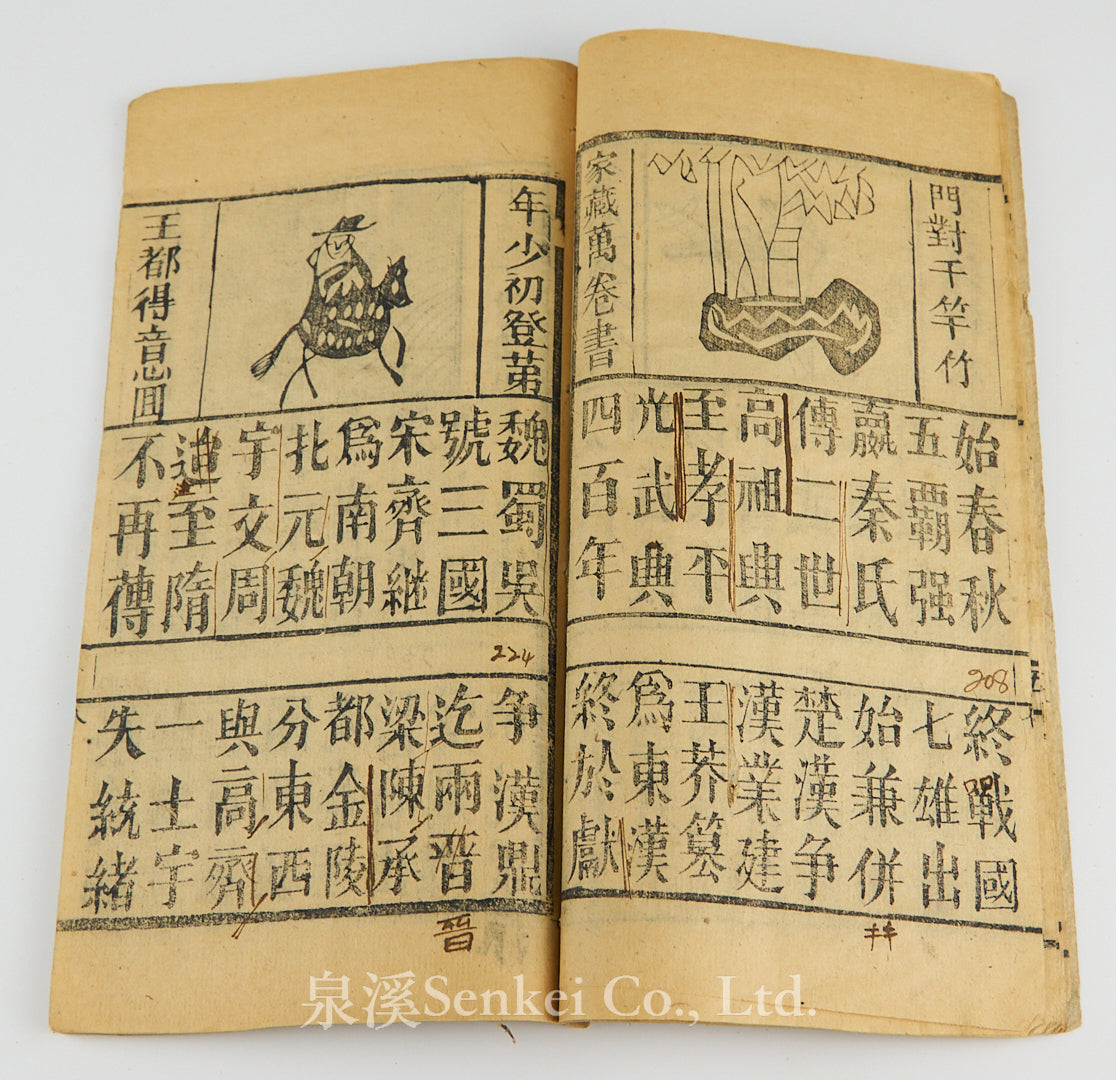 門對千竿竹
家藏萬卷書
始春秋
終戰國
五覇强
七雄出
嬴秦氏
始兼併
傳二世
楚漢争
高祖典
漢業建
至孝平
王莽篡
光武典
爲東漢
四百年
終於獻
208
年少初登苐
王都得意囬
魏蜀吳
争漢鼎
號三國
迄兩晋
宋齊継
梁陳承
爲南朝
都金陵
北元魏
分東西
宇文周
與高齊
逮至隋
一土宇
不再傳
失統緒
224
晋
泉溪Senkei Co., Ltd.